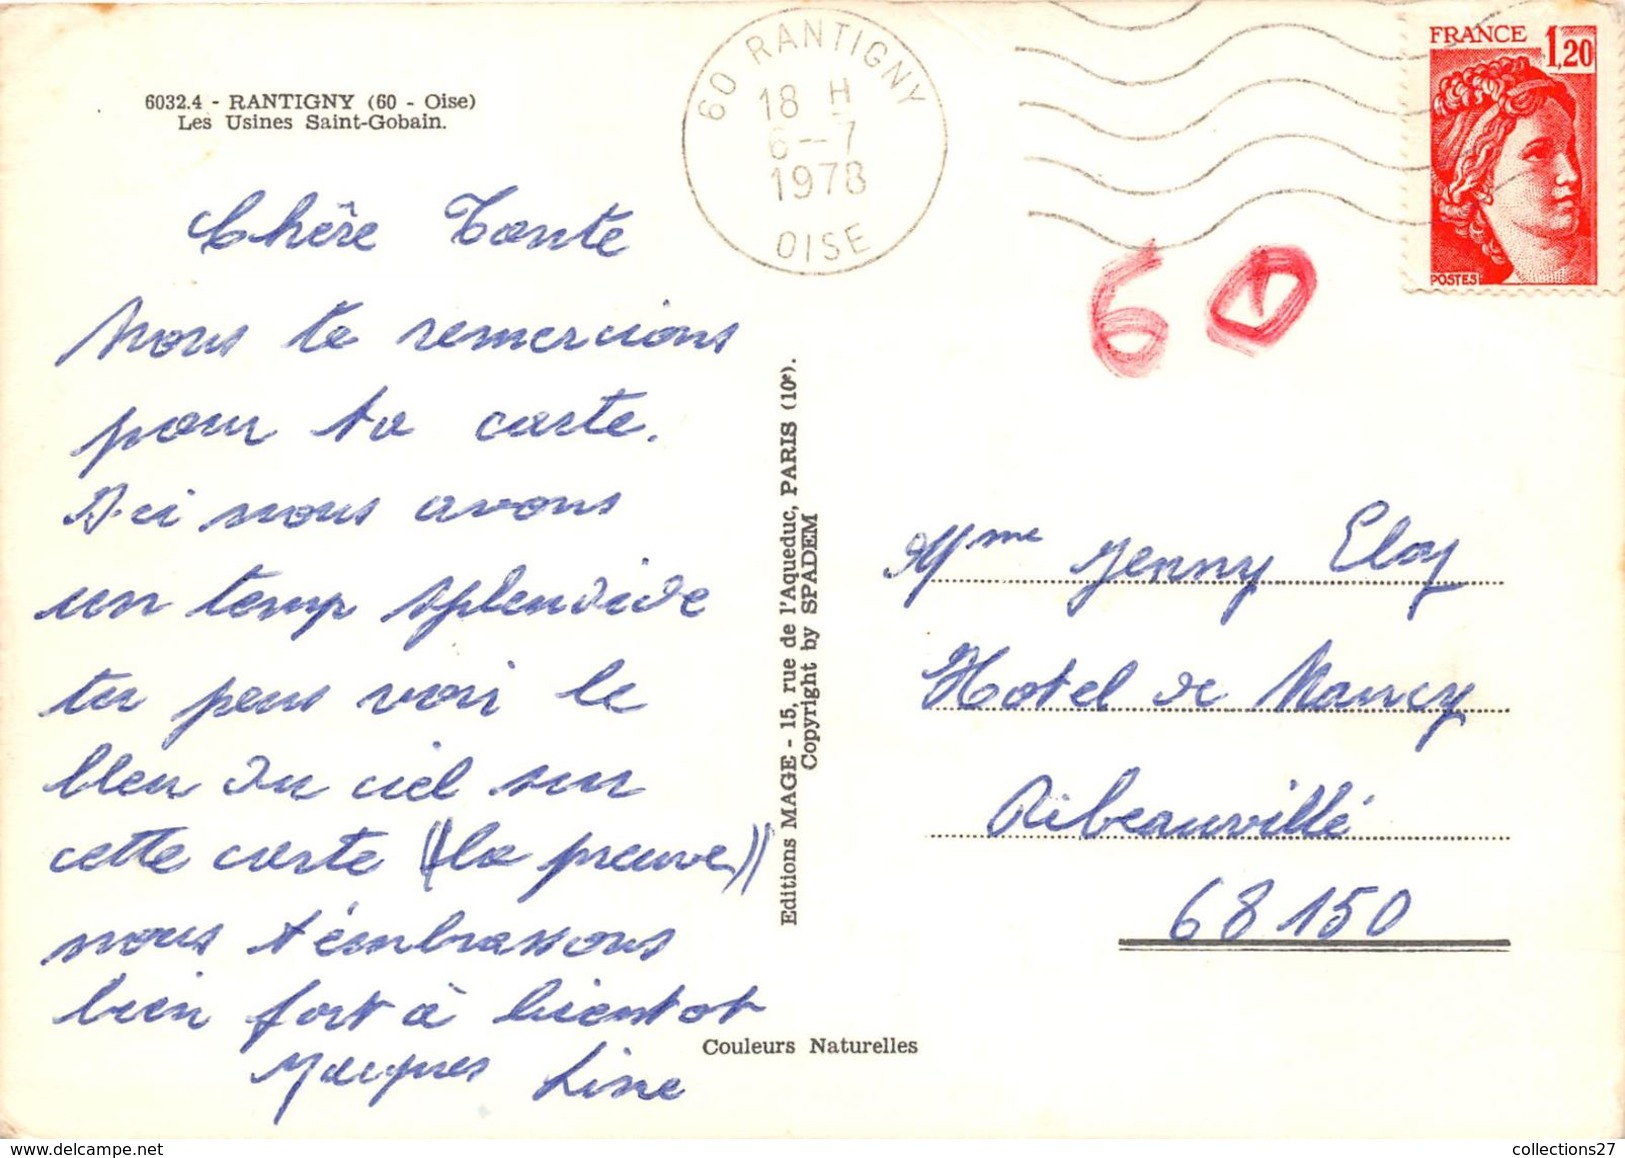 6032.4 - RANTIGNY (60 - Oise)
Les Usines Saint-Gobain.
60 RANTIGNY
18 H
6-7
1978
OISE
FRANCE 1,20
POSTES
60
Chère Tante
Nous te remercions
pour ta carte.
Ici nous avons
un temp splendide
tu peus voir le
bleu du ciel sur
cette carte (la preuve)
nous t'émbrassons
bien fort à bientot
Jacques Line
Editions MAGE - 15, rue de l'Aqueduc, PARIS (10e).
Copyright by SPADEM
Mme Jenny Eloy
Hotel de Nancy
Ribeauvillé
68150
Couleurs Naturelles
collections27